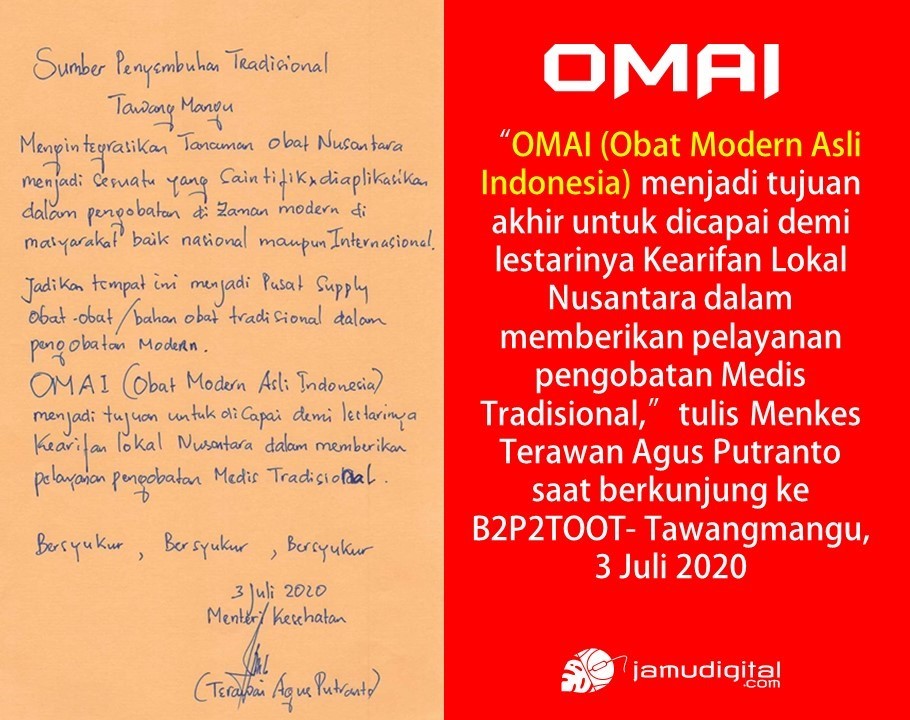 Sumber Penyembuhan Tradisional
Tawang Mangu
Mengintegrasikan Tanaman Obat Nusantara
menjadi sesuatu yang Saintifik, diaplikasikan
dalam pengobatan di Zaman modern di
masyarakat baik nasional maupun Internasional.
Jadikan tempat ini menjadi Pusat Supply
Obat-obat/bahan obat tradisional dalam
pengobatan Modern.
OMAI (Obat Modern Asli Indonesia)
menjadi tujuan untuk dicapai demi lestarinya
Kearifan lokal Nusantara dalam memberikan
pelayanan pengobatan Medis Tradisional.
Bersyukur, Bersyukur, Bersyukur
3 Juli 2020
Menteri Kesehatan
(Terawan Agus Putranto)
OMAI
“OMAI (Obat Modern Asli
Indonesia) menjadi tujuan
akhir untuk dicapai demi
lestarinya Kearifan Lokal
Nusantara dalam
memberikan pelayanan
pengobatan Medis
Tradisional,” tulis Menkes
Terawan Agus Putranto
saat berkunjung ke
B2P2TOOT- Tawangmangu,
3 Juli 2020
jamudigital
.com